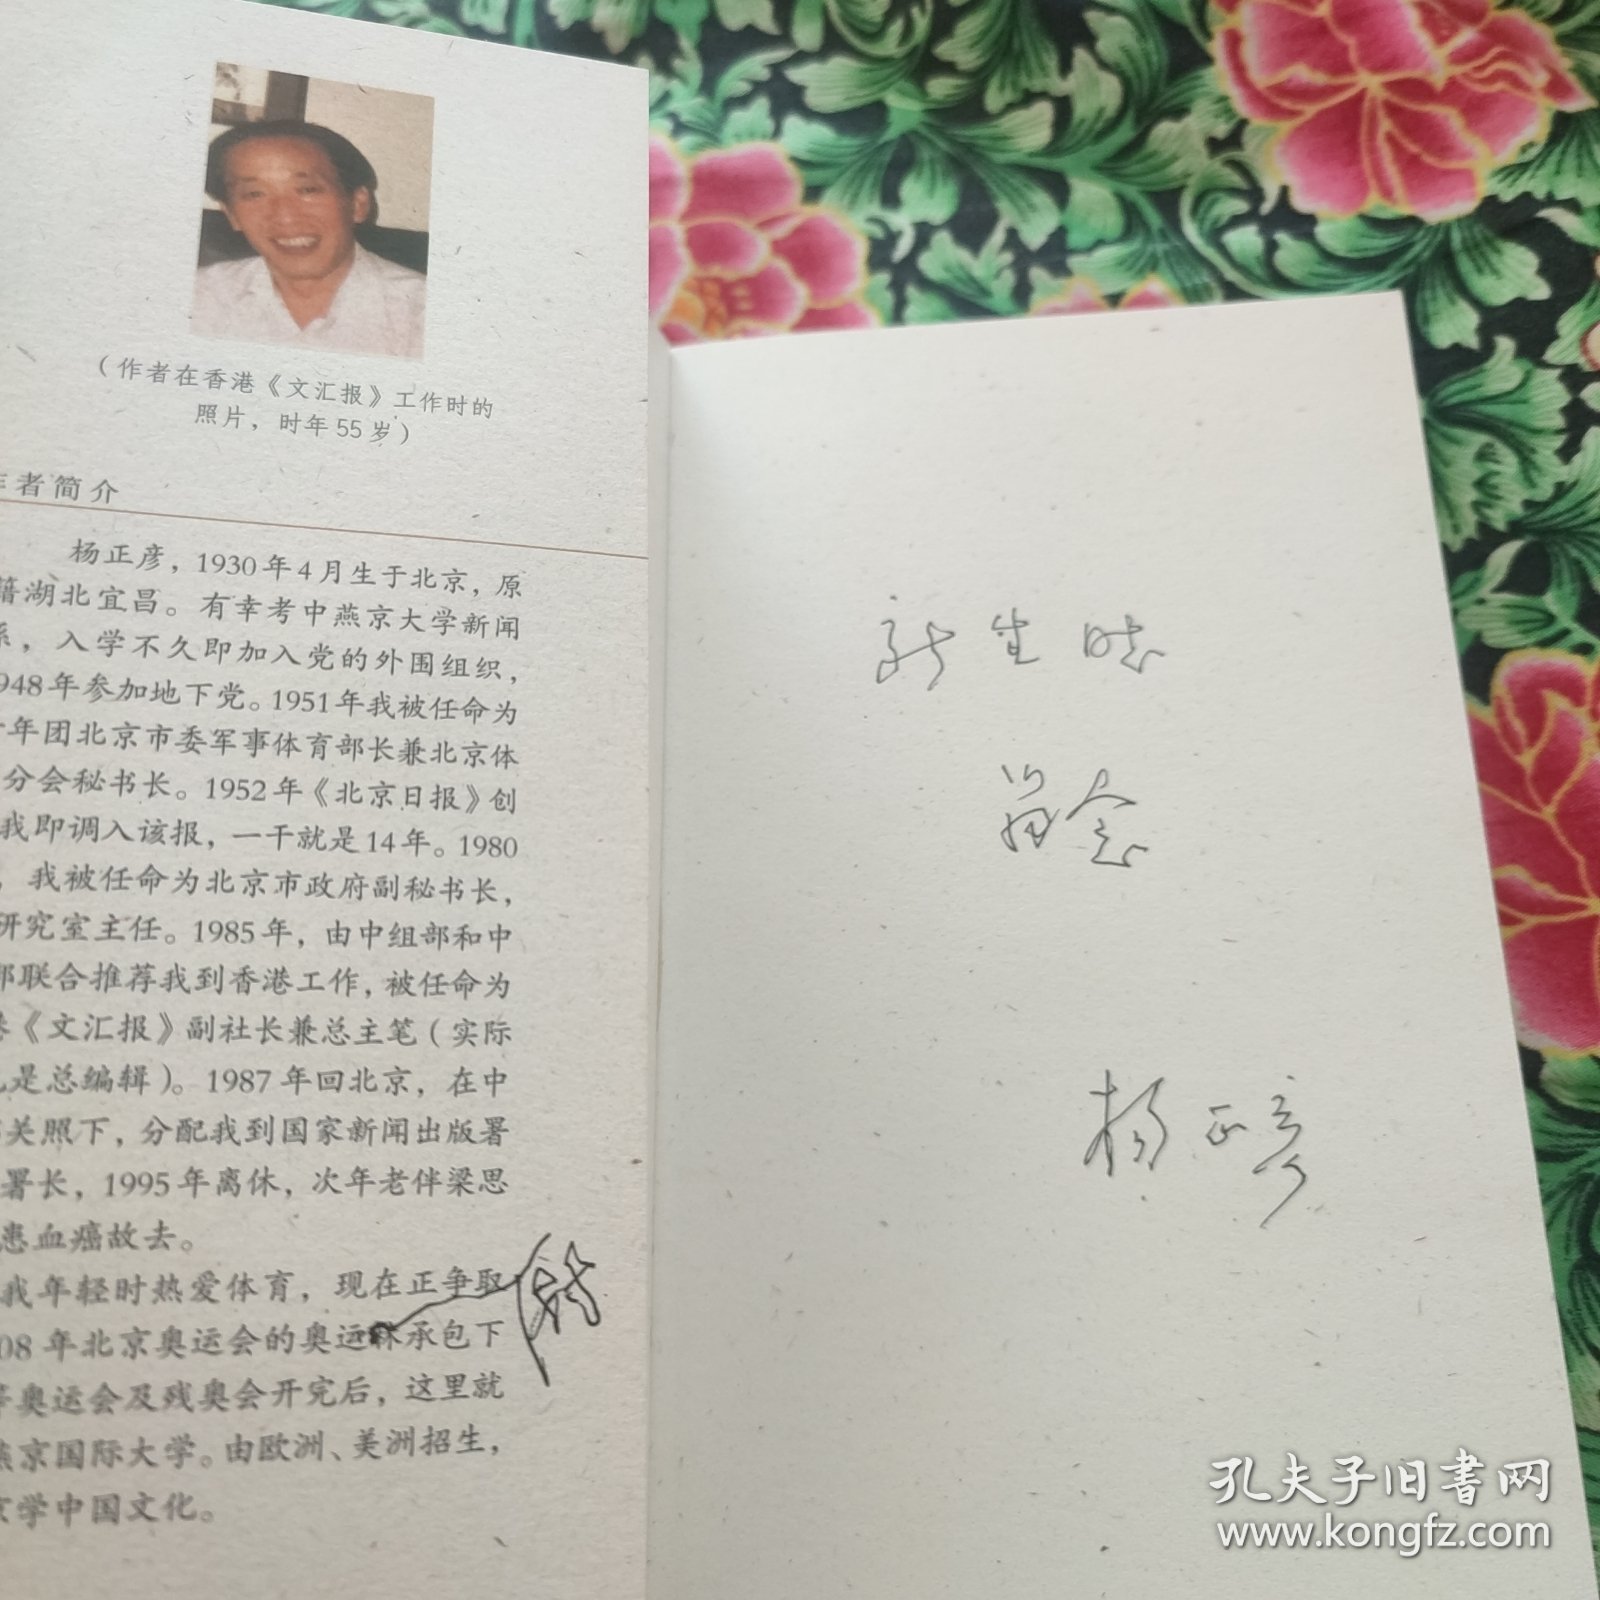 （作者在香港《文汇报》工作时的
照片，时年55岁）
者简介
杨正彦，1930年4月生于北京，原
籍湖北宜昌。有幸考中燕京大学新闻
系，入学不久即加入党的外围组织，
948年参加地下党。1951年我被任命为
年团北京市委军事体育部长兼北京体
分会秘书长。1952年《北京日报》创
我即调入该报，一干就是14年。1980
，我被任命为北京市政府副秘书长，
研究室主任。1985年，由中组部和中
部联合推荐我到香港工作，被任命为
港《文汇报》副社长兼总主笔（实际
是总编辑）。1987年回北京，在中
关照下，分配我到国家新闻出版署
署长，1995年离休，次年老伴梁思
患血癌故去。
我年轻时热爱体育，现在正争取
08年北京奥运会的奥运林承包下
奥运会及残奥会开完后，这里就
燕京国际大学。由欧洲、美洲招生，
京学中国文化。
生
留念
杨正彦
孔夫子旧书网
www.kongfz.com